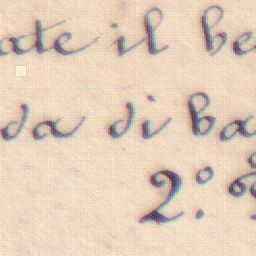 ate il be
da di ba
2.º